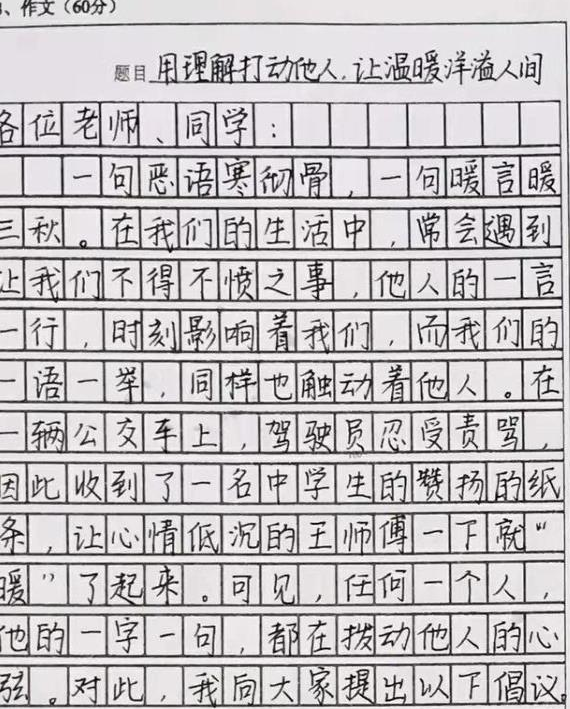 、作文（60分）
题目 用理解打动他人，让温暖洋溢人间
各位老师、同学：
一句恶语寒彻骨，一句暖言暖
三秋。在我们的生活中，常会遇到
让我们不得不愤之事，他人的一言
一行，时刻影响着我们，而我们的
一语一举，同样也触动着他人。在
一辆公交车上，驾驶员忍受责骂，
因此收到了一名中学生的赞扬的纸
条，让心情低沉的王师傅一下就“
暖”了起来。可见，任何一个人，
他的一字一句，都在拨动他人的心
弦。对此，我向大家提出以下倡议。